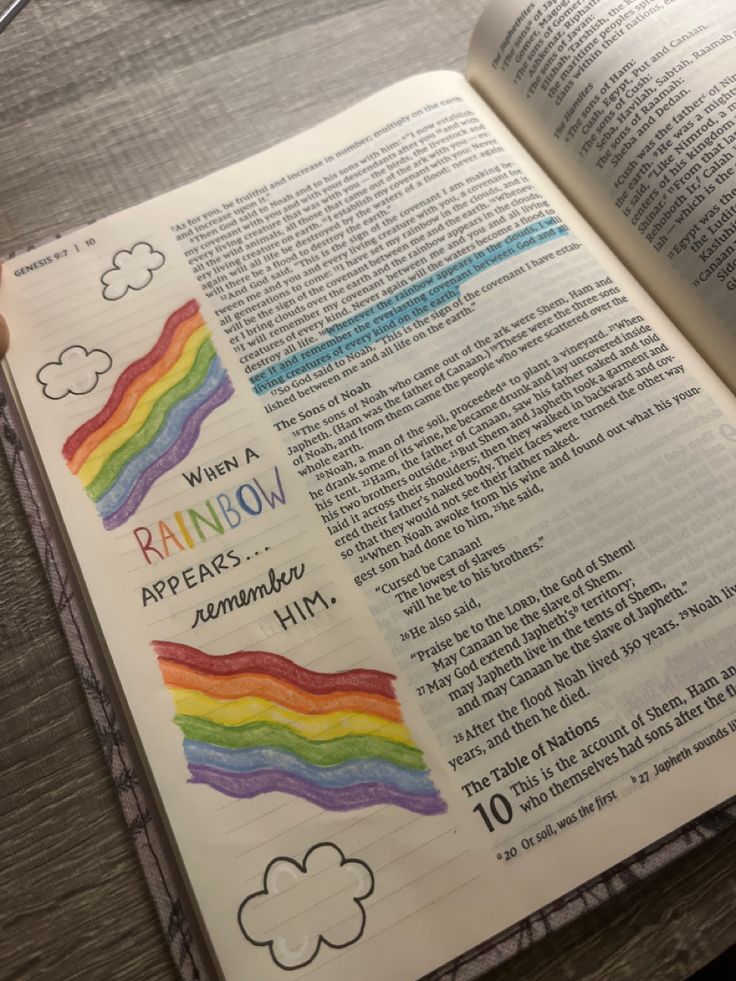 GENESIS 9:7 | 10
WHEN A
RAINBOW
APPEARS...
remember
HIM.
7As for you, be fruitful and increase in number; multiply on the earth
and increase upon it."
8Then God said to Noah and to his sons with him: 9"I now establish
my covenant with you and with your descendants after you 10and with
every living creature that was with you — the birds, the livestock and
all the wild animals, all those that came out of the ark with you — ev-
ery living creature on earth. 11I establish my covenant with you: Never
again will all life be destroyed by the waters of a flood; never again
will there be a flood to destroy the earth."
12And God said, "This is the sign of the covenant I am making be-
tween me and you and every living creature with you, a covenant for
all generations to come: 13I have set my rainbow in the clouds, and it
will be the sign of the covenant between me and the earth. 14Whenev-
er I bring clouds over the earth and the rainbow appears in the clouds,
15I will remember my covenant between me and you and all living
creatures of every kind. Never again will the waters become a flood to
destroy all life. 16Whenever the rainbow appears in the clouds, I will
see it and remember the everlasting covenant between God and all
living creatures of every kind on the earth."
17So God said to Noah, "This is the sign of the covenant I have estab-
lished between me and all life on the earth."
The Sons of Noah
18The sons of Noah who came out of the ark were Shem, Ham and
Japheth. (Ham was the father of Canaan.) 19These were the three sons
of Noah, and from them came the people who were scattered over the
whole earth.
20Noah, a man of the soil, proceededa to plant a vineyard. 21When
he drank some of its wine, he became drunk and lay uncovered inside
his tent. 22Ham, the father of Canaan, saw his father naked and told
his two brothers outside. 23But Shem and Japheth took a garment and
laid it across their shoulders; then they walked in backward and cov-
ered their father's naked body. Their faces were turned the other way
so that they would not see their father naked.
24When Noah awoke from his wine and found out what his youn-
gest son had done to him, 25he said,
"Cursed be Canaan!
The lowest of slaves
will he be to his brothers."
26He also said,
"Praise be to the LORD, the God of Shem!
May Canaan be the slave of Shem.
27May God extend Japheth'sb territory;
may Japheth live in the tents of Shem,
and may Canaan be the slave of Japheth."
28After the flood Noah lived 350 years. 29Noah liv
years, and then he died.
The Table of Nations
10 This is the account of Shem, Ham an
who themselves had sons after the fl
a20 Or soil, was the first b27 Japheth sounds li
The Japhethites
2The sonsa of Jap
Gomer, Magog,
3The sons of Gomer:
Ashkenaz, Riphath
4The sons of Javan:
Elishah, Tarshish, the
the maritime peoples
clans within their nations, ea
The Hamites
6The sons of Ham:
Cush, Egypt, Put and Canaan.
7The sons of Cush:
Seba, Havilah, Sabtah, Raamah
The sons of Raamah:
Sheba and Dedan.
8Cush was the father of Nim
the earth. 9He was a might
is said, "Like Nimrod, a m
centers of his kingdom
Shinar. 11From that la
Rehoboth Ir, Calah
lah — which is the
13Egypt was the
the Ludit
Kasluhi
15Canaan
Sid